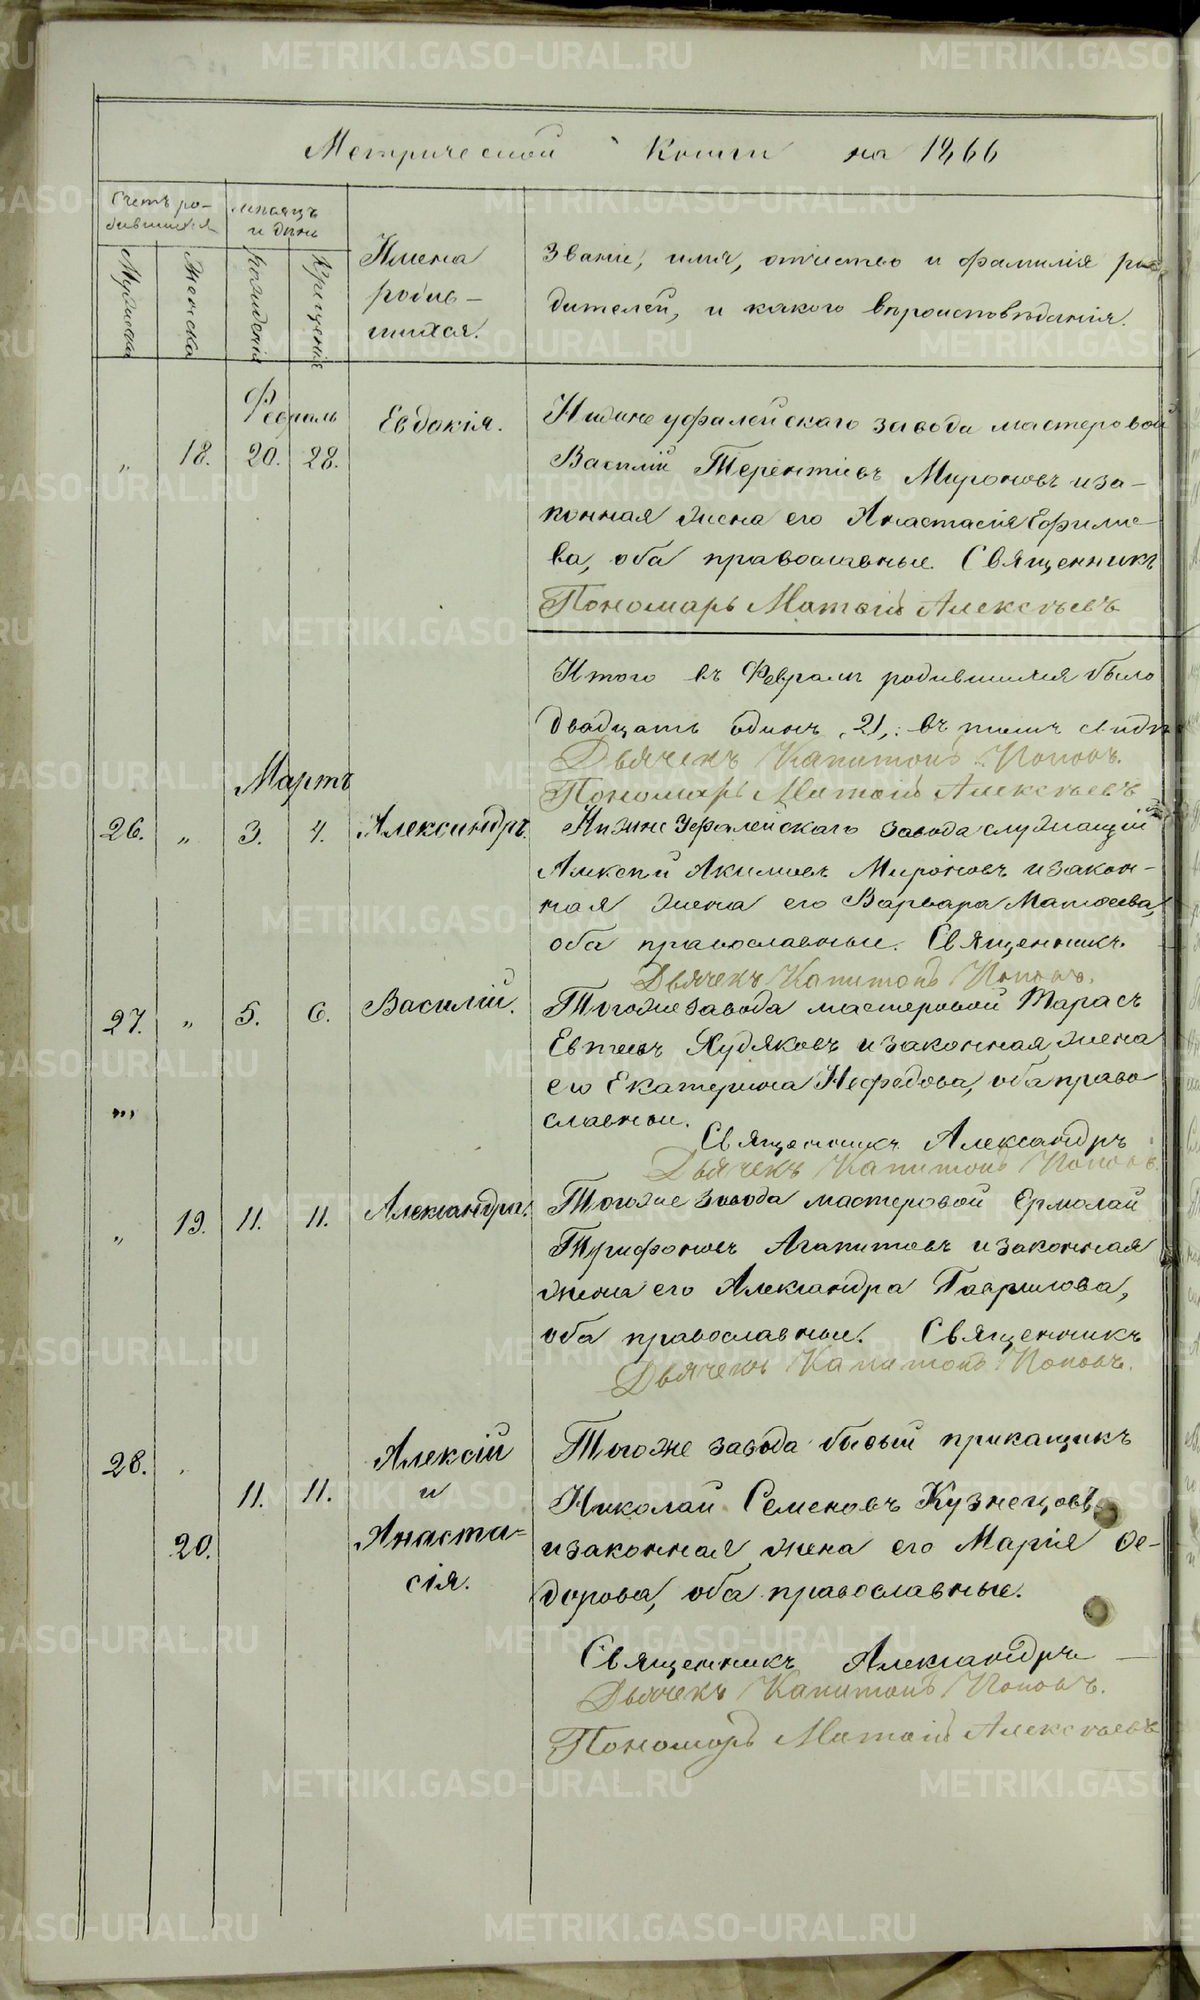 Метрической Книги на 1866
Счетъ ро-
дившихся
Мужеска
Женска
месяцъ
и день
рожденія
Крещенія
Имена
родив-
шихся.
Званіе, имя, отчество и фамилія ро-
дителей, и какого вѣроисповѣданія.
Февраль
„ 18. 20. 28.
Евдокія.
Нижнеуфалейскаго завода мастеровой
Василій Терентіевъ Мироновъ и за-
конная жена его Анастасія Ефимо-
ва, оба православные. Священникъ
Пономарь Матѳій Алексѣевъ
Итого въ Февралѣ родившихся было
двадцать одинъ, 21,
Дьячекъ Капитонъ Поповъ.
Пономарь Матѳій Алексѣевъ
Мартъ
26. „ 3. 4. Александръ.
Нижне Уфалейскаго завода служащій
Алексѣй Акимовъ Мироновъ и закон-
ная жена его Варвара Матѳеева,
оба православные. Священникъ
Дьячекъ Капитонъ Поповъ.
27. „ 5. 6. Василій.
Тогоже завода мастеровой Тарасъ
Евтеевъ Худяковъ и законная жена
его Екатерина Нефедова, оба право
славные.
Священникъ Александръ
Дьячекъ Капитонъ Поповъ.
„ 19. 11. 11. Александра.
Тогоже завода мастеровой Ермолай
Трифоновъ Агапитовъ и законная
жена его Александра Гаврилова,
оба православные. Священникъ
Дьячекъ Капитонъ Поповъ.
28. 11. 11.
20.
Алексій
и
Анаста-
сія.
Тогоже завода бывый прикащикъ
Николай Семеновъ Кузнецовъ
и законная жена его Марія Ѳе-
дорова, оба православные.
Священникъ Александръ
Дьячекъ Капитонъ Поповъ.
Пономарь Матѳій Алексѣевъ
METRIKI.GASO-URAL.RU